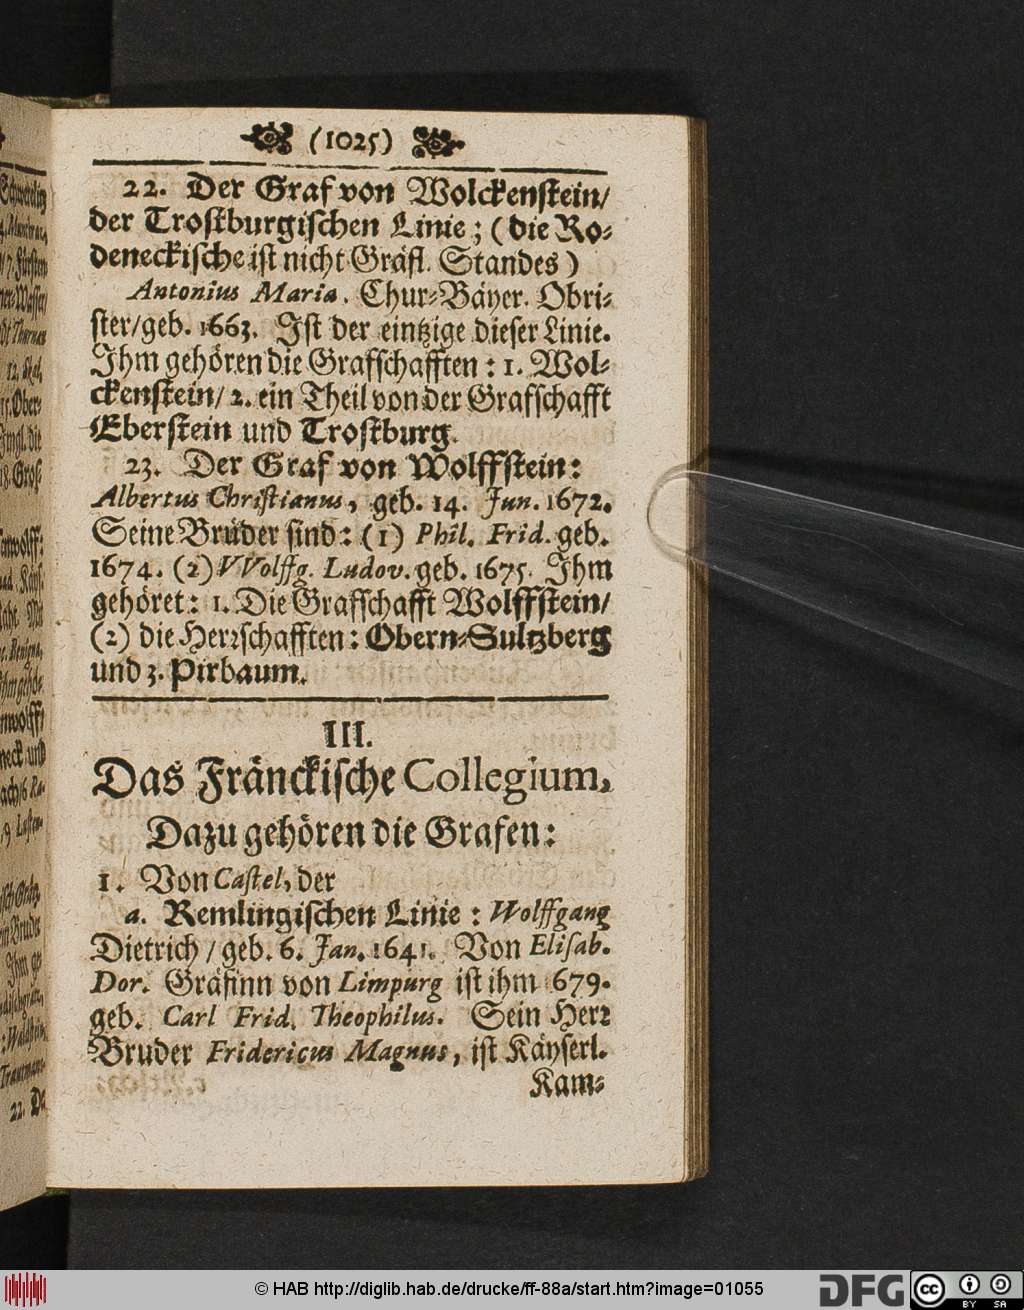 (1025)
22. Der Graf von Wolckenstein/
der Trostburgischen Linie; (die Ro-
deneckische ist nicht Gräfl. Standes)
Antonius Maria. Chur-Bäyer. Obri-
ster/geb. 1663. Ist der eintzige dieser Linie.
Ihm gehören die Grafschafften: 1. Wol-
ckenstein/ 2. ein Theil von der Grafschafft
Eberstein und Trostburg.
23. Der Graf von Wolffstein:
Albertus Christianus, geb. 14. Jun. 1672.
Seine Brüder sind: (1) Phil. Frid. geb.
1674. (2) VVolffg. Ludov. geb. 1675. Ihm
gehöret: 1. Die Grafschafft Wolffstein/
(2) die Herrschafften: Obern-Sultzberg
und 3. Pirbaum.
III.
Das Fränckische Collegium,
Dazu gehören die Grafen:
1. Von Castel, der
a. Remlingischen Linie: Wolffgang
Dietrich / geb. 6. Jan. 1641. Von Elisab.
Dor. Gräfinn von Limpurg ist ihm 1679.
geb. Carl Frid. Theophilus. Sein Herr
Bruder Fridericus Magnus, ist Käyserl.
Kam-
© HAB http://diglib.hab.de/drucke/ff-88a/start.htm?image=01055
DFG
cc
BY SA